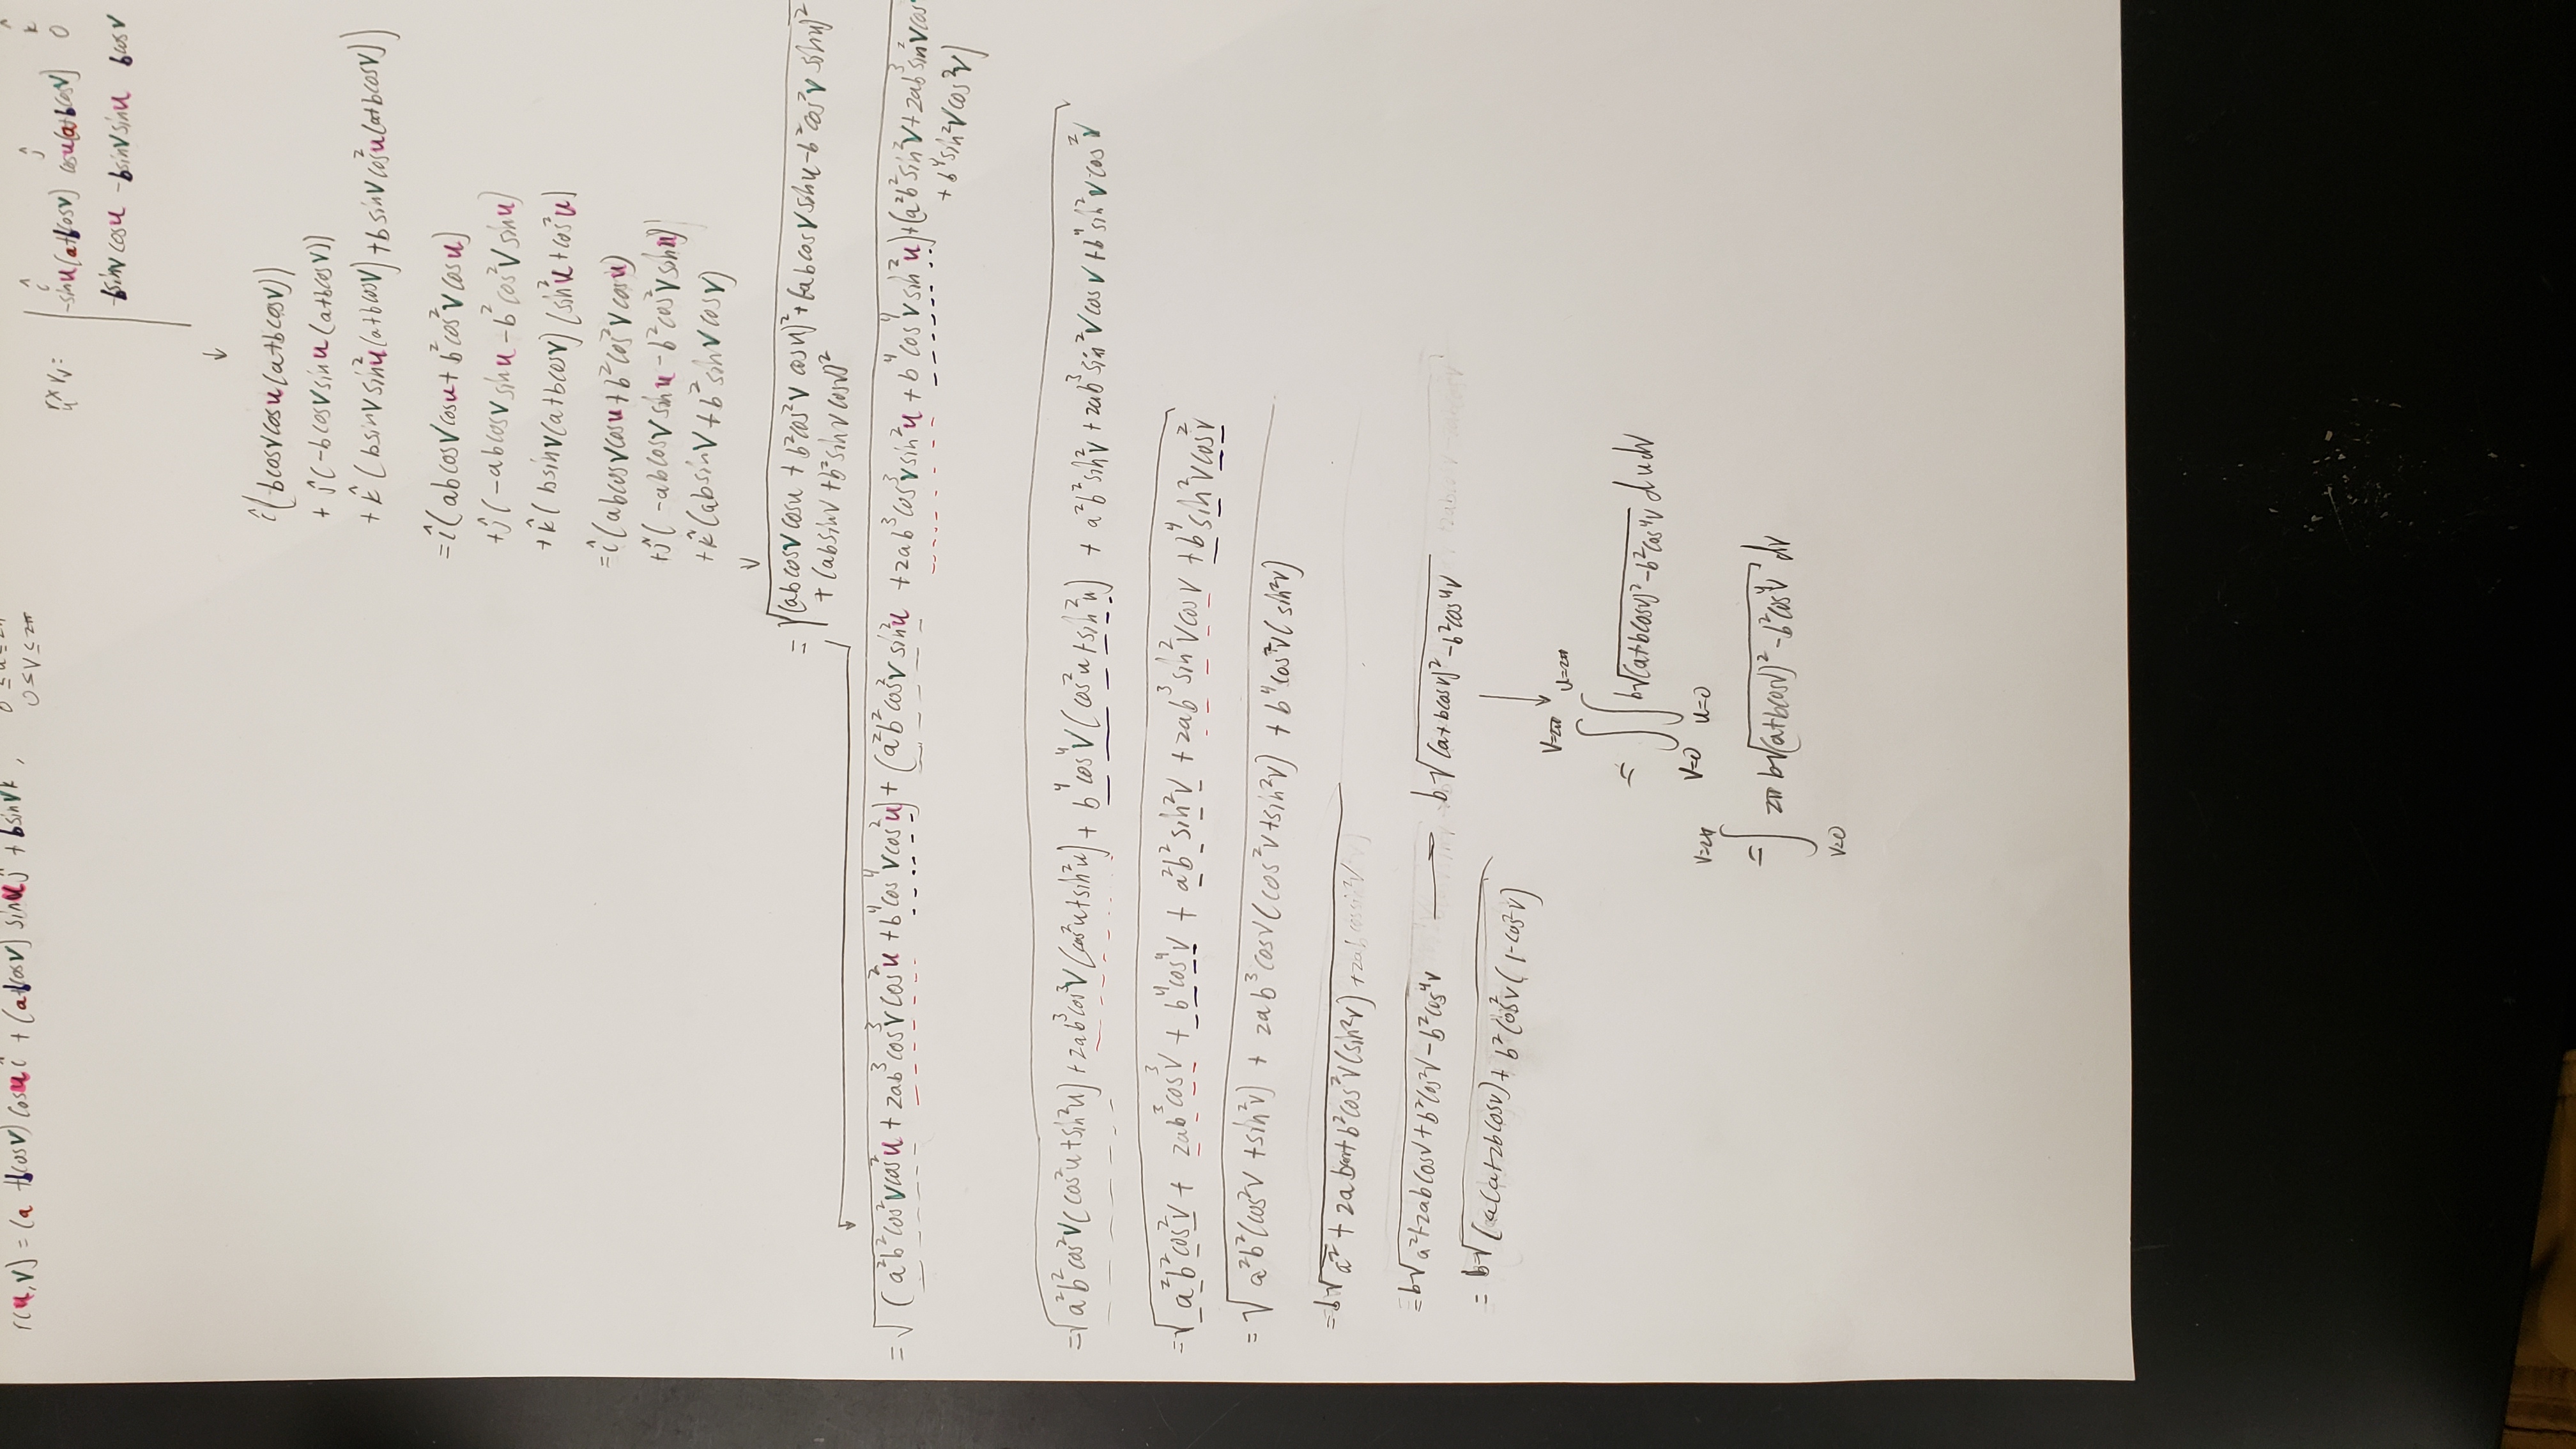 r(u,v) = (a + bcosv) cosu î + (a + bcosv) sinu ĵ + bsinv k,
0 ≤ u ≤ 2π
0 ≤ v ≤ 2π
î ĵ k̂
r_u × r_v = | -sinu(a+bcosv) cosu(a+bcosv) 0
-bsinvcosu -bsinvsinu bcosv
↓
î(bcosvcosu(a+bcosv))
+ ĵ(-bcosvsinu(a+bcosv))
+ k̂(bsinvsin²u(a+bcosv)+bsinvcos²u(a+bcosv))
=î(abcosvcosu+b²cos²vcosu)
+ĵ(-abcosvsinu-b²cos²vsinu)
+k̂(bsinv(a+bcosv)(sin²u+cos²u)
=î(abcosvcosu+b²cos²vcosu)
+ĵ(-abcosvsinu-b²cos²vsinu)
+k̂(absinv+b²sinvcosv)
↓
= √(abcosvcosu + b²cos²v cosu)²+(-abcosvsinu-b²cos²v sinu)²
+ (absinv+b²sinvcosv)²
= √(a²b²cos²vcos²u + 2ab³cos³vcos²u + b⁴cos⁴vcos²u) + (a²b²cos²vsin²u + 2ab³cos³vsin²u + b⁴cos⁴vsin²u)+(a²b²sin²v+2ab³sin²vcos
+ b⁴sin²vcos²v)
=√a²b²cos²v(cos²u+sin²u)+2ab³cos³v(cos²u+sin²u)+ b⁴cos⁴v(cos²u+sin²u) + a²b²sin²v+2ab³sin²vcosv+b⁴sin²vcos²v
=√a²b²cos²v + 2ab³cos³v + b⁴cos⁴v + a²b²sin²v + 2ab³sin²vcosv + b⁴sin²vcos²v
= √a²b²(cos²v+sin²v) + 2ab³cosv(cos²v+sin²v) + b⁴cos²v(sin²v)
=b√a² + 2ab + b²cos²v(sin²v)
=b√a²+2abcosv+b²cos²v-b²cos⁴v → b√(a+bcosv)²-b²cos⁴v
= b√(a(a+2bcosv)+ b²cos²v(1-cos²v)
↓
v=2π u=2π
= ∫∫ b√(a+bcosv)²-b²cos⁴v dudv
v=0 u=0
v=2π
=∫ 2πb√(a+bcosv)²-b²cos⁴v dv
v=0